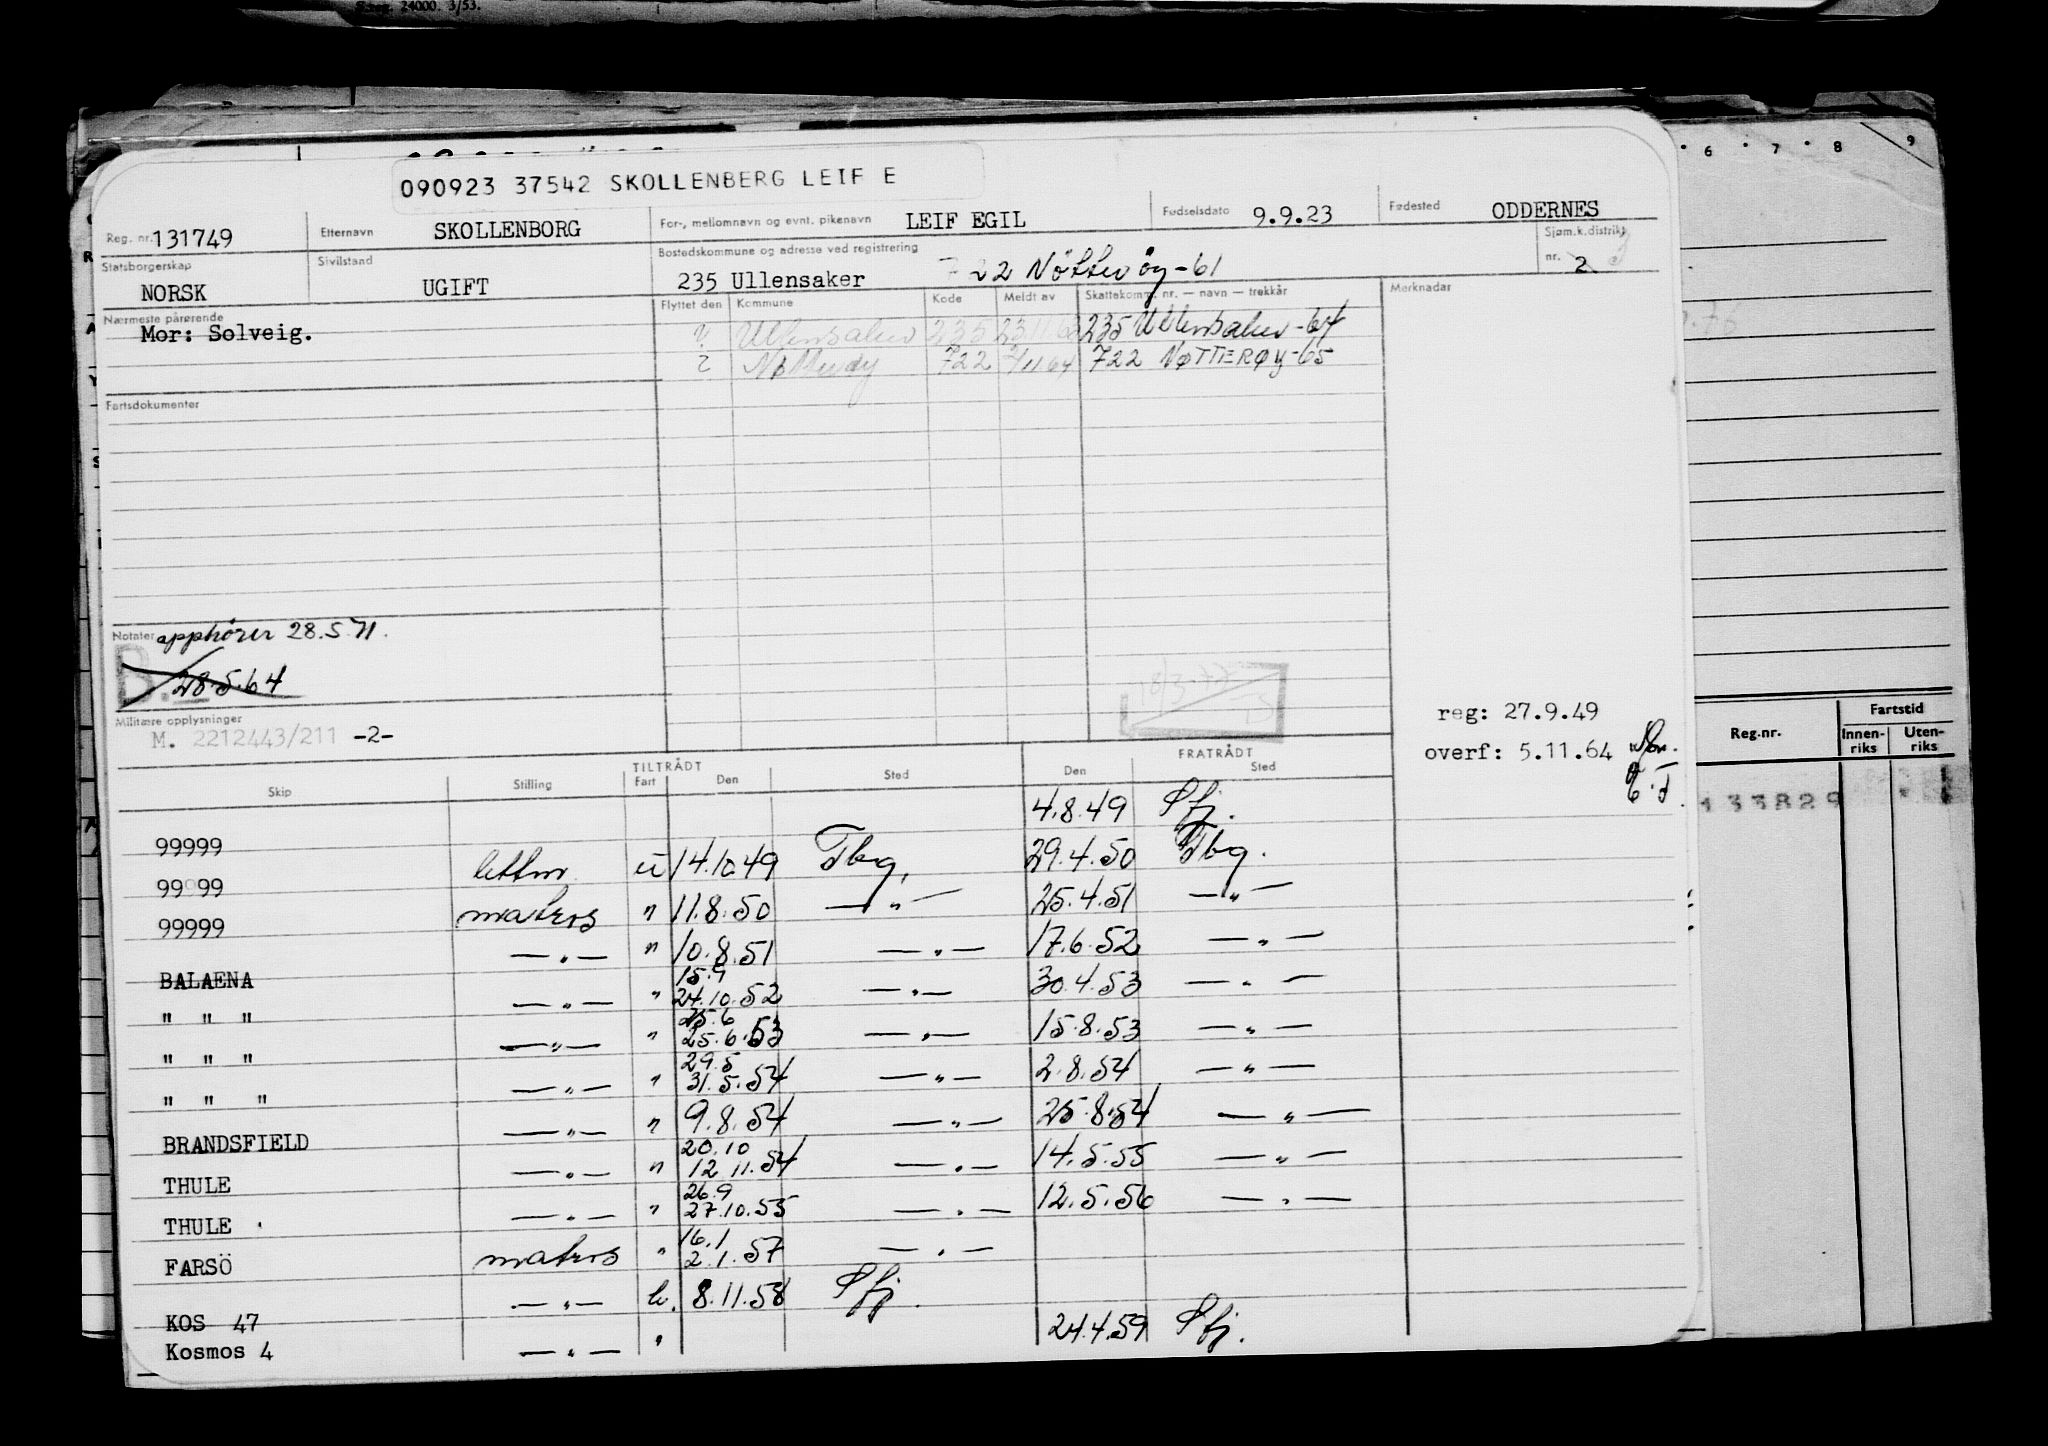 Reg. 24000. 3/53.
6 · 7 · 8 9
090923 37542 SKOLLENBERG LEIF E
Reg. nr. 131749 Etternavn SKOLLENBORG For-, mellomnavn og evnt. pikenavn LEIF EGIL Fødselsdato 9.9.23 Fødested ODDERNES
Statsborgerskap NORSK Sivilstand UGIFT Bostedskommune og adresse ved registrering 235 Ullensaker 722 Nötteröy-61 Sjøm.k.distrikt nr. 2
Nærmeste pårørende Flyttet den Kommune Kode Meldt av Skattekomm. nr. — navn — trekkår Merknader
Mor: Solveig. ? Ullensaker 235 235 Ullensaker-64
? Nøtterøy 722 2/11 64 722 NØTTERØY-65
Fartsdokumenter
Notater opphører 28.5.71.
B. 28.5.64
Militære opplysninger
M. 2212443/211 -2-
18/3-77
reg: 27.9.49
overf: 5.11.64
Reg.nr. Fartstid
Innen-riks Uten-riks
133829
TILTRÅDT FRATRÅDT
Skip Stilling Fart Den Sted Den Sted
99999 4.8.49 Sfj.
99 99 lettm. u 14.10.49 Tbg, 29.4.50 Tbg.
99999 matros " 11.8.50 — " — 25.4.51 — " —
BALAENA — " — " 10.8.51 — " — 17.6.52 — " —
" " " — " — " 15.9 24.10.52 — " — 30.4.53 — " —
" " " — " — " 25.6 25.6.53 — " — 15.8.53 — " —
" " " — " — " 29.5 31.5.54 — " — 2.8.54 — " —
BRANDSFIELD — " — " 9.8.54 — " — 25.8.54 — " —
THULE — " — " 20.10 12.11.54 — " — 14.5.55 — " —
THULE — " — " 26.9 27.10.55 — " — 12.5.56 — " —
FARSÖ matros " 16.1 2.1.57 — " —
KOS 47 — " — h. 8.11.58 Sfj.
Kosmos 4 — " — " 24.4.59 Sfj.